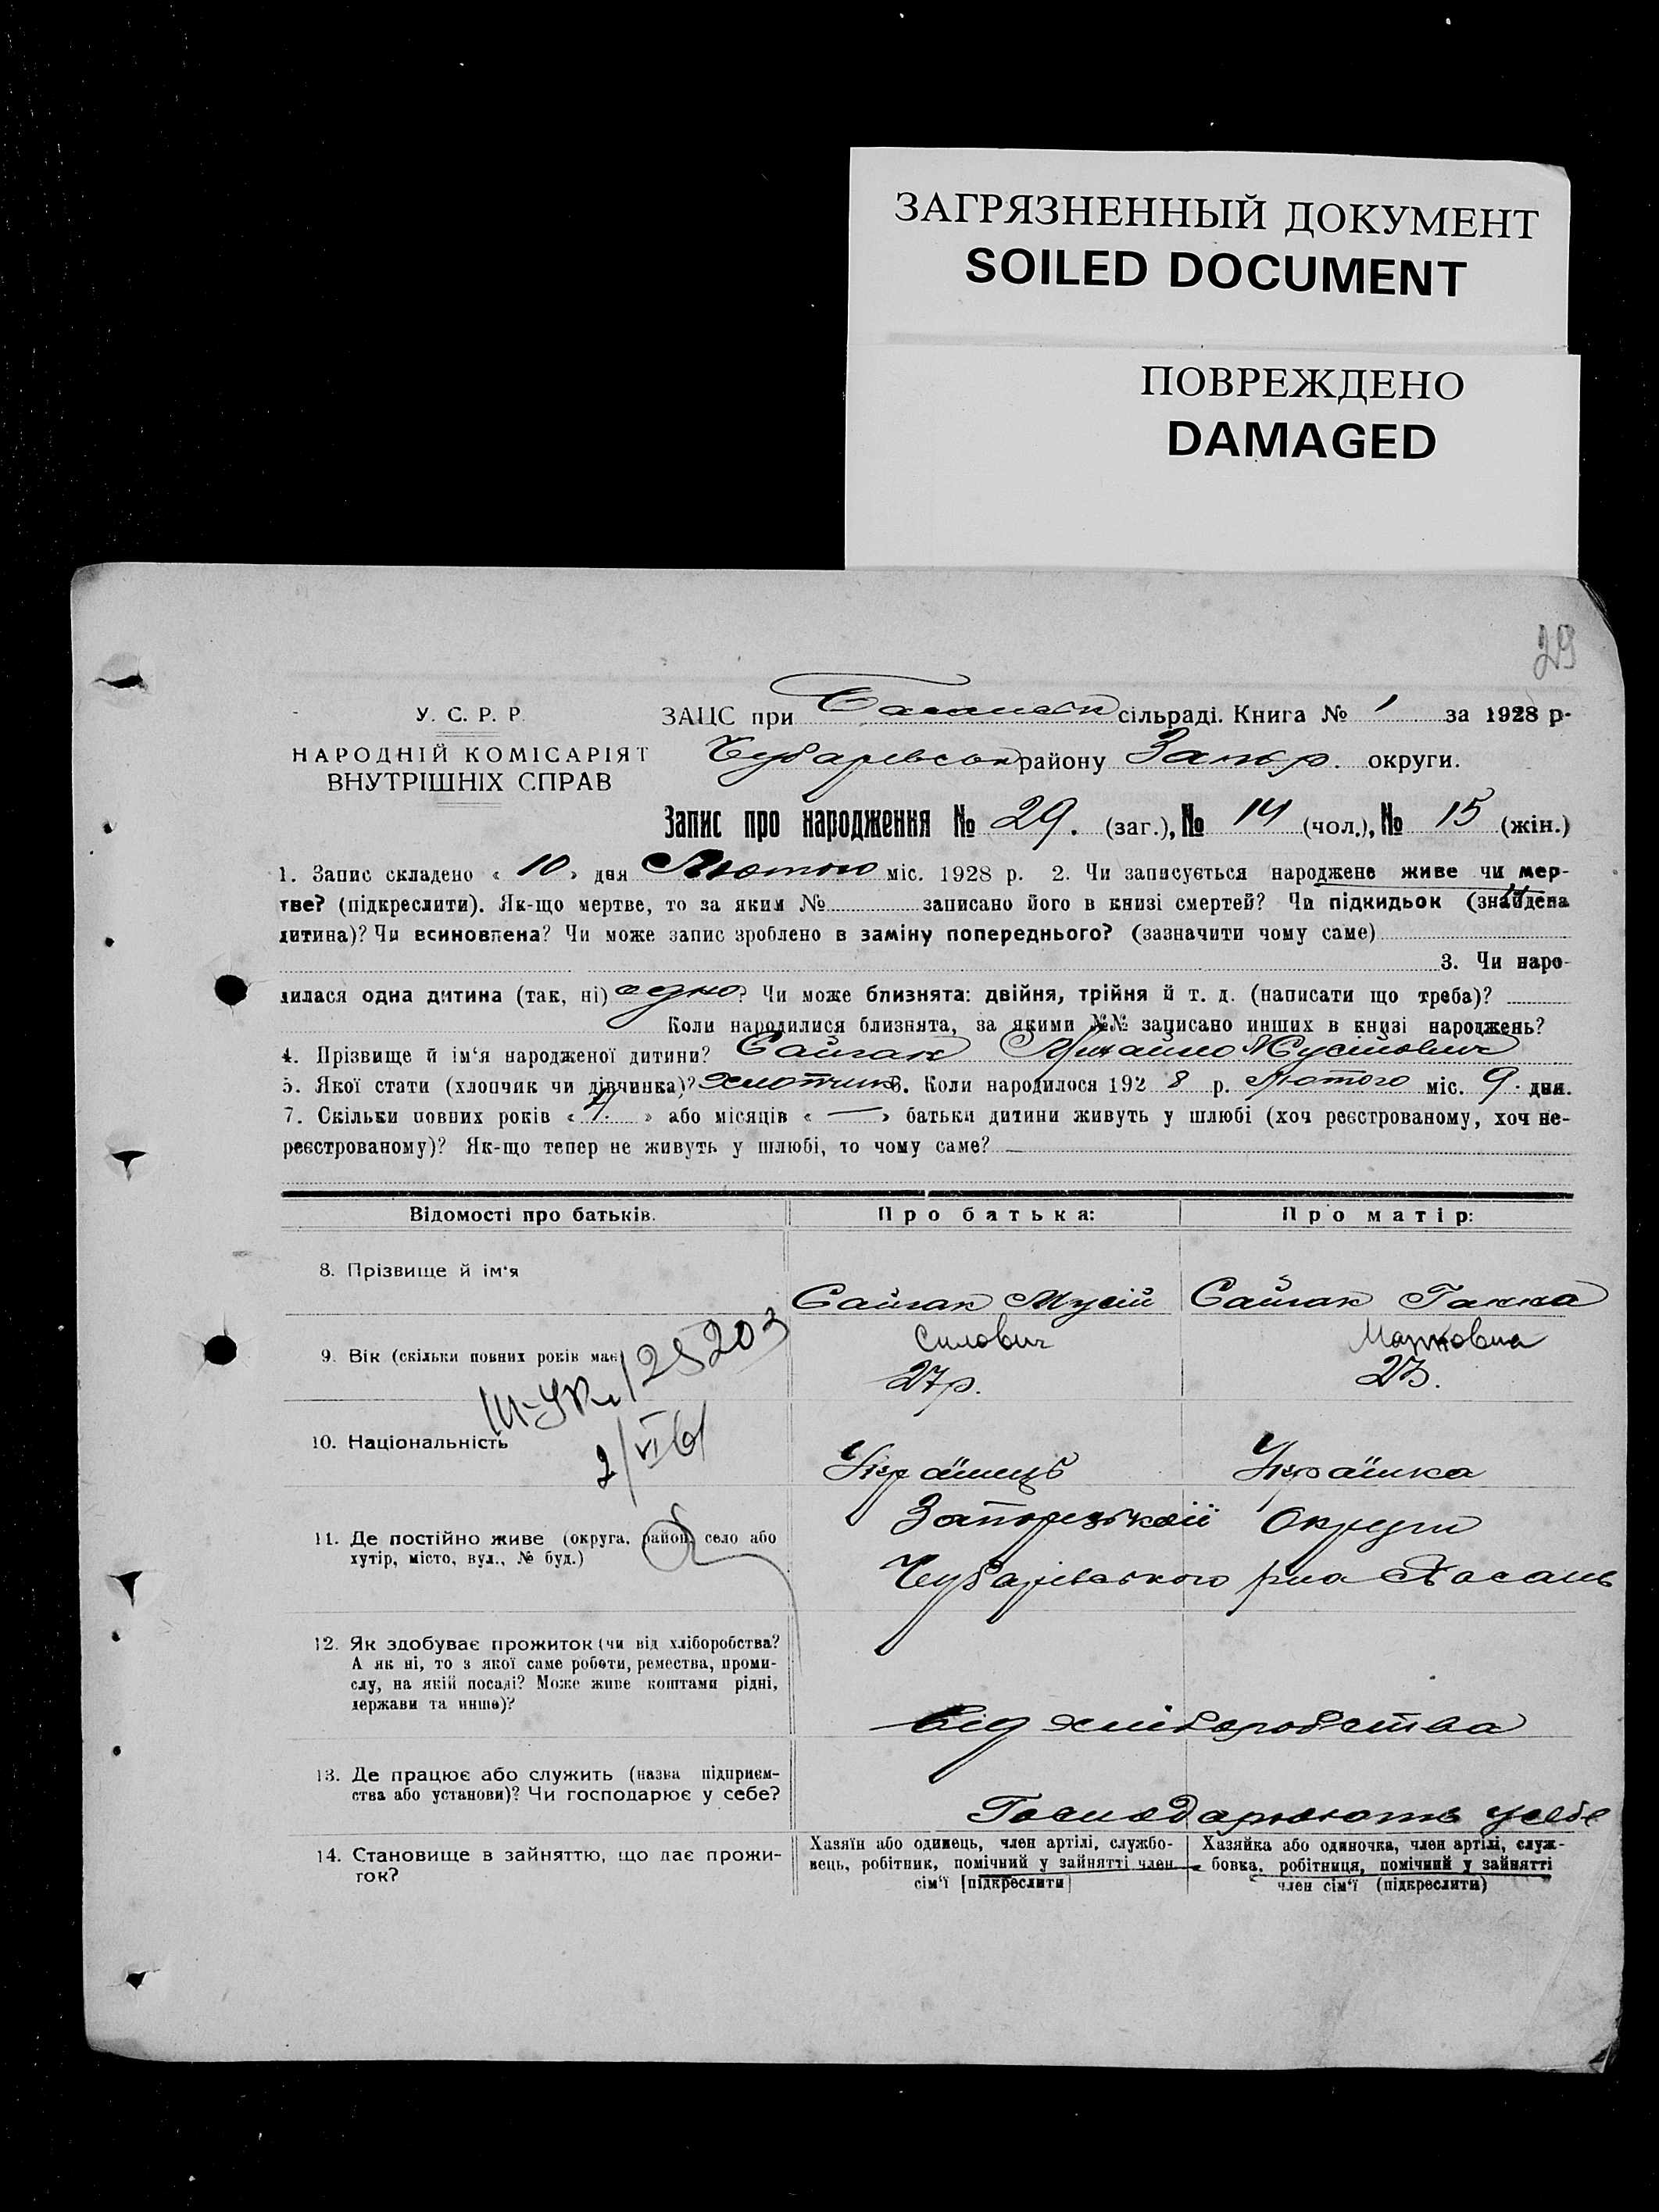 ЗАГРЯЗНЕННЫЙ ДОКУМЕНТ
SOILED DOCUMENT
ПОВРЕЖДЕНО
DAMAGED
29
У. С. Р. Р.
НАРОДНІЙ КОМІСАРІЯТ
ВНУТРІШНІХ СПРАВ
ЗАЦС при сільраді. Книга № 1 за 1928 р.
Чубарівськ району Запор. округи.
Запис про народження № 29. (заг.), № 14 (чол.), № 15 (жін.)
1. Запис складено « 10 » дня Лютого міс. 1928 р. 2. Чи записується народжене живе чи мер-
тве? (підкреслити). Як-що мертве, то за яким № записано його в книзі смертей? Чи підкидьок (знайдена
дитина)? Чи всиновлена? Чи може запис зроблено в заміну попереднього? (зазначити чому саме)
3. Чи наро-
дилася одна дитина (так, ні) одно? Чи може близнята: двійня, трійня й т. д. (написати що треба)?
Коли народилися близнята, за якими №№ записано инших в книзі народжень?
4. Прізвище й ім‘я народженої дитини? Сайгак Михайло Мусійович
5. Якої стати (хлопчик чи дівчинка)? хлопчик 6. Коли народилося 192 8 р. Лютого міс. 9. дня.
7. Скільки повних років « 4. » або місяців « — » батьки дитини живуть у шлюбі (хоч реєстрованому, хоч не-
реєстрованому)? Як-що тепер не живуть у шлюбі, то чому саме? —
Відомості про батьків. Про батька: Про матір:
8. Прізвище й ім‘я
Сайгак Мусій Сайгак Ганна
Силович Марковна
9. Вік (скільки повних років має)
27р. 23.
10. Національність
2/VI 61
Українець Українка
11. Де постійно живе (округа, район, село або
хутір, місто, вул., № буд.)
Запорізької Округи
Чубарівського р-на Басань
12. Як здобуває прожиток (чи від хліборобства?
А як ні, то з якої саме роботи, ремества, проми-
слу, на якій посаді? Може живе коштами рідні,
держави та инше)?
Від хліборобства
13. Де працює або служить (назва підприєм-
ства або установи)? Чи господарює у себе?
Господарюють у себе
14. Становище в зайняттю, що дає прожи-
ток?
Хазяїн або одинець, член артілі, службо-
вець, робітник, помічний у зайнятті член
сім‘ї [підкреслити]
Хазяйка або одиночка, член артілі, служ-
бовка, робітниця, помічний у зайнятті
член сім‘ї (підкреслити)